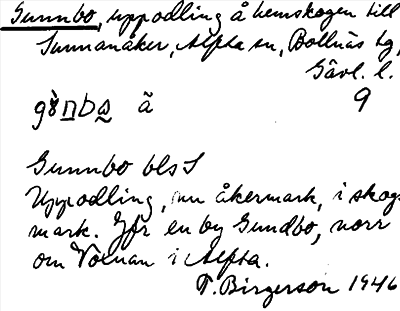 Gunnbo, uppodling å hemskogen till
Sunnanåker, Alfta sn, Bollnäs tg,
Gävl. l.
9
Gunnbo bls S
Uppodling, nu åkermark, i skogs
mark. Jfr en by Gundbo, norr
om Voxnan i Alfta.
T. Birgerson 1946